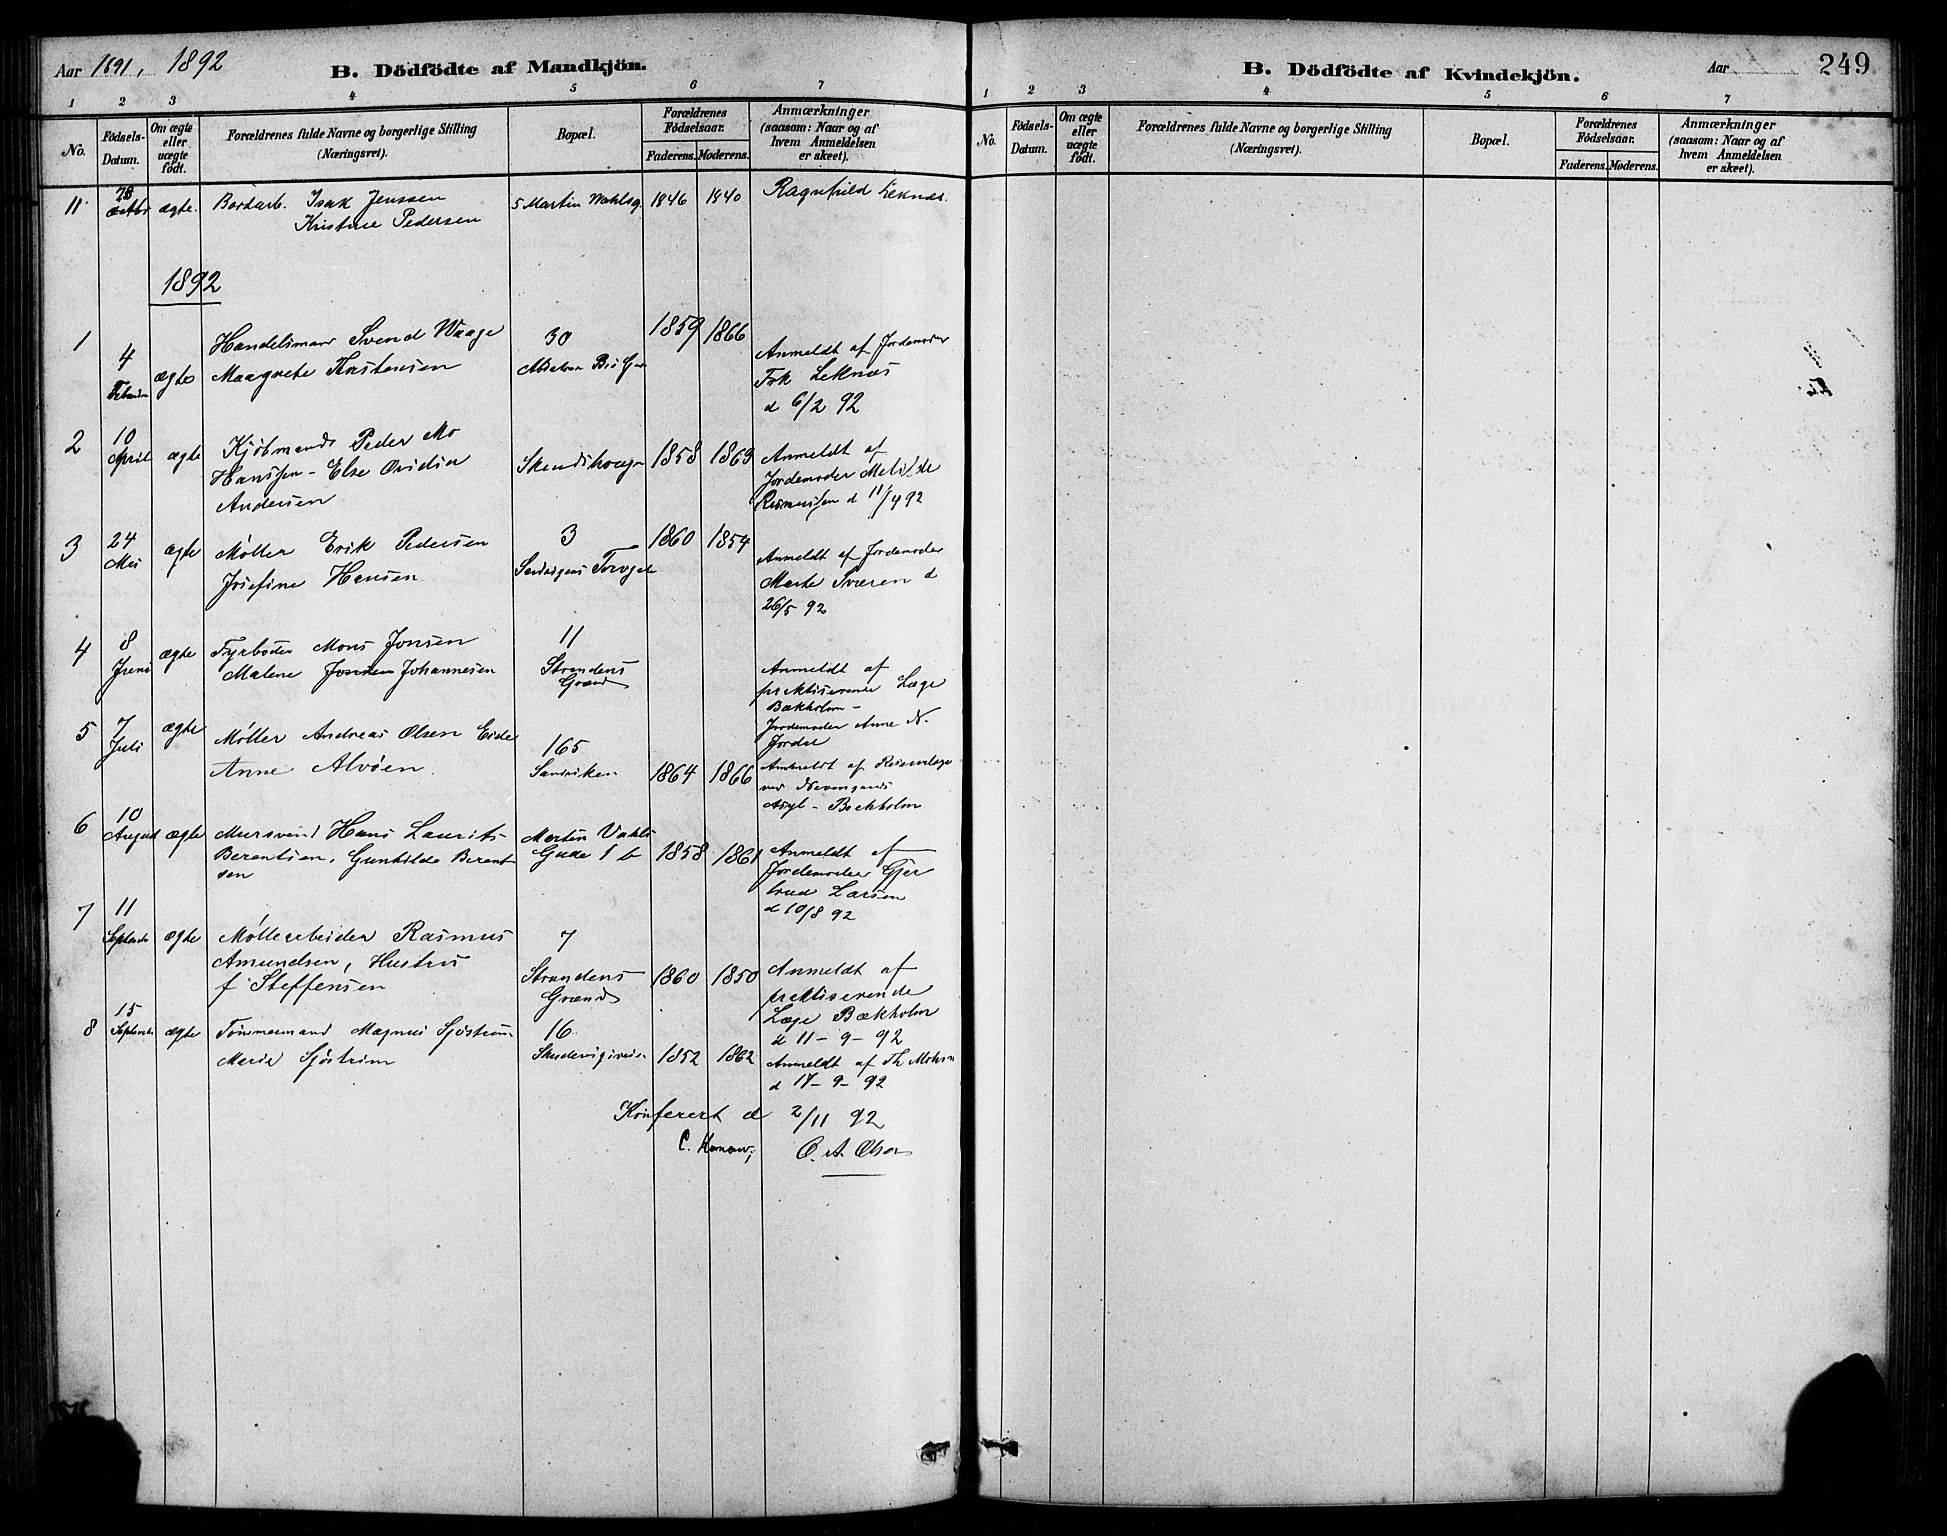 Aar 1891, 1892
B. Dödfödte af Mandkjön.
1 2 3 4 5 6 7
No.
Födsels-
Datum.
Om ægte
eller
uægte
födt.
Forældrenes fulde Navne og borgerlige Stilling
(Næringsvei).
Bopæl.
Forældrenes
Födselsaar.
Faderens. Moderens.
Anmærkninger
(saasom: Naar og af
hvem Anmeldelsen
er skeet).
11 28 ægte. Bordarb. Isak Jenssen 5 Martin Wahlsg. 1846 1840 Ragnfrid Leknes.
Kristine Pedersen
1892
1 4 ægte Handelsmand Svend Waage 30 1859 1866 Anmeldt af Jordemoder
Maagrete Torstensen
Frk Leknæs
d 6/2 92
2 10 April ægte Kjöbmand Peder Mo 1858 1863 Anmeldt af
Hanssen - Else
Andersen
Jordemoder Metilde
Rasmussen d 11/4 92
3 24 Mai ægte Møller Erik Pedersen 3 1860 1854
Josefine Hansen
Sandvigens Torvgade
Anmeldt af Jordemoder
Marte Sværen d
26/5 92
4 8 Juni ægte Fyrbøder Mons Jonsen 11
Malene Jonsen Johannesen
Strandens
Grænd
Anmeldt af
praktiserende Læge
Bækholm -
Jordemoder Anne N.
Jordal
5 7 Juli ægte Møller Andreas Olsen Eide 165
Anne Alvøen.
Sandviken 1864 1866
Anmeldt af
ved Nevengaards
Asyl - Bækholm
6 10 August ægte Mursvend Hans Laurits
Berentsen, Gunhilde Berent
sen
Morten Vahls
Gade 1 b 1858 1861 Anmeldt af
Jordemoder Gjer
trud Larsen
d 10/8 92
7 11 September ægte Møllearbeider Rasmus 7
Amundsen, Hustru
f Steffensen
Strandens
Grænd 1860 1850 Anmeldt af
praktiserende
Læge Bækholm
d 11-9-92
8 15 September ægte Tømmermand Magnus Sjøstrøm 16
Marie Sjøstrøm
1852 1862 Anmeldt af Th
d 17-9-92
Konferert d 2/11 92
O. A. Olsen
B. Dödfödte af Kvindekjön.
Aar
249
1 2 3 4 5 6 7
No.
Födsels-
Datum.
Om ægte
eller
uægte
födt.
Forældrenes fulde Navne og borgerlige Stilling
(Næringsvei).
Bopæl.
Forældrenes
Födselsaar.
Faderens. Moderens.
Anmærkninger
(saasom: Naar og af
hvem Anmeldelsen
er skeet).